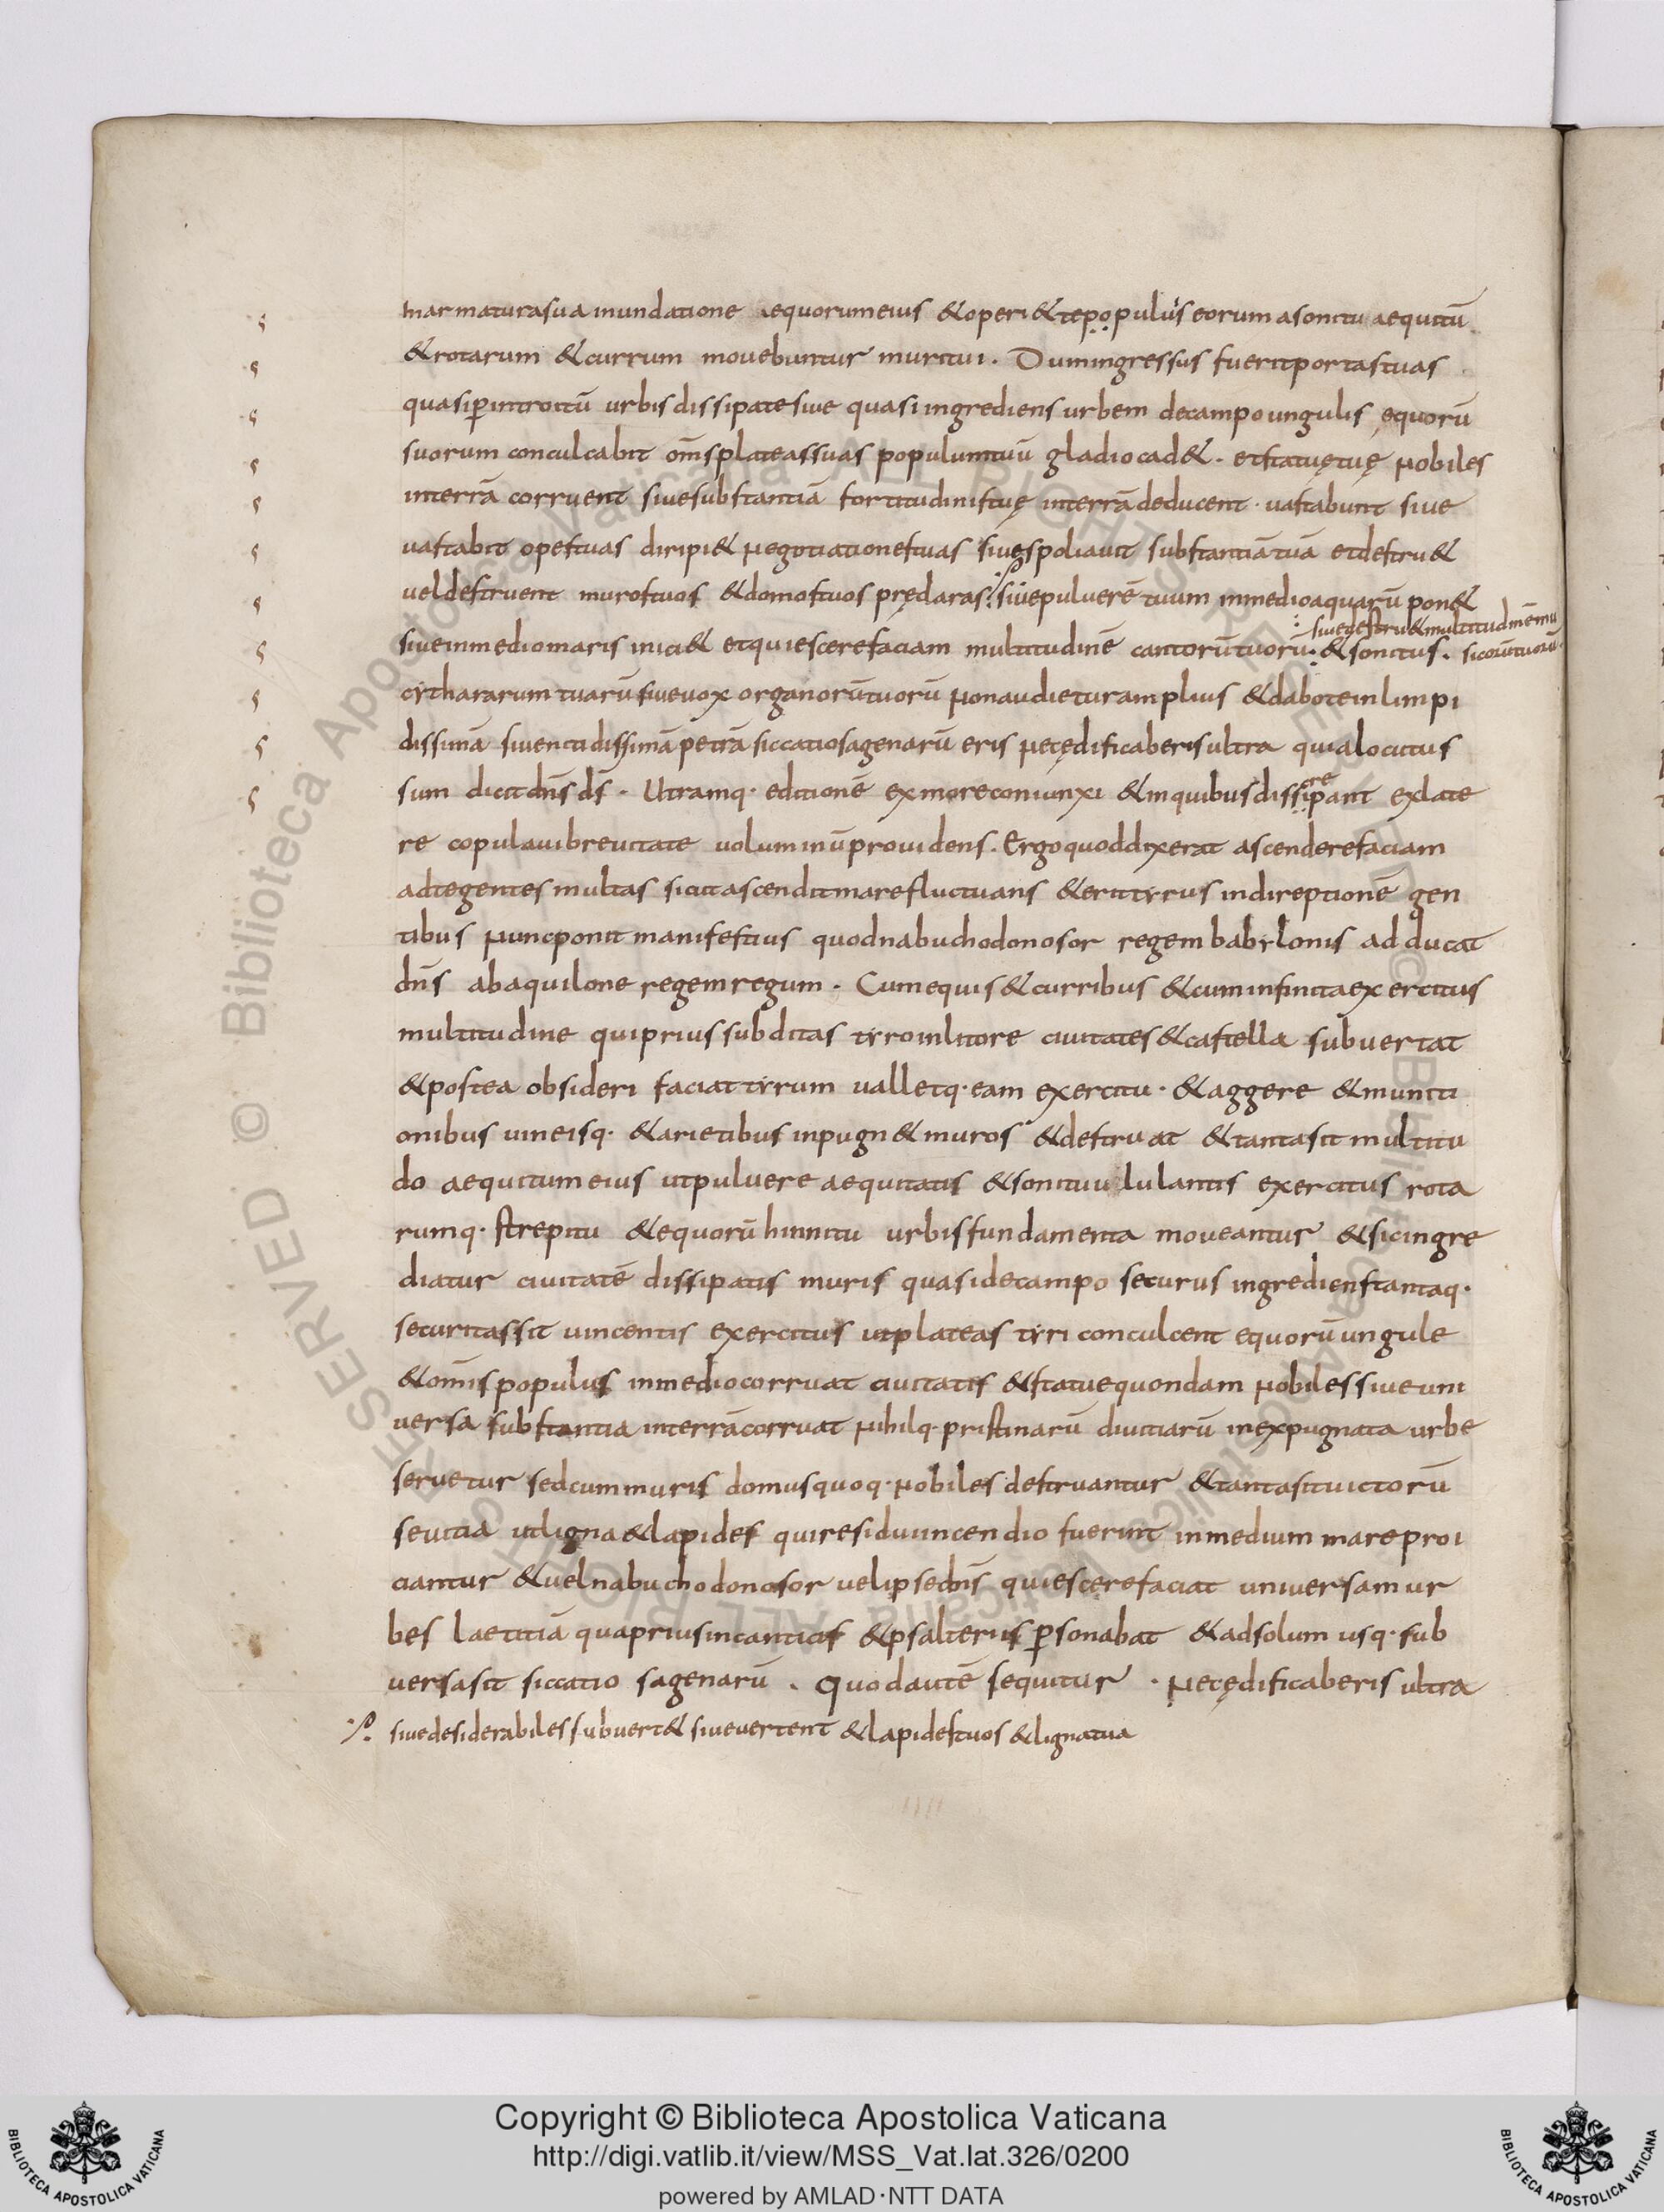 in armatura sua inundatione aequorum eius & operi& te populus eorum a sonitu aequitū
& rotarum & currum movebuntur muri tui. Dum ingressus fuerit portas tuas
quasi p introitū urbis dissipate sive quasi ingrediens urbem de campo ungulis equorū
suorum conculcabit om̄s plateas suas populum tuū gladio cad&. et statuę tuę nobiles
in terrā corruent sive substantiā fortitudinis tuę in terrā deducent. vastabunt sive
vastabit opes tuas diripi& negotiationes tuas sive spoliavit substantiā tuā et destru&
vel destruent muros tuos & domos tuos pręclaras: sive pulverē tuum in medio aquarū pon&
: sive destru& multitudinē mu
sive in medio maris inici& et quiescere faciam multitudinē cantorū tuorū: & sonitus. sicorū tuorū.
cythararum tuarū sive vox organorū tuorū non audietur amplius & dabo te in limpi
dissimā sive nitidissimā petrā siccatio sagenarū eris nec ędificaberis ultra quia locutus
sum dicit dn̄s ds̄. Utramq· editionē ex more coniunxi & in quibus discrepant ex late
re copulavi brevitate voluminū providens. Ergo quod dixerat ascendere faciam
ad te gentes multas sicut ascendit mare fluctuans & erit tyrus in direptionē gen
tibus nunc ponit manifestius quod nabuchodonosor regem babylonis adducat
dn̄s ab aquilone regem regum. Cum equis & curribus & cum infinita exercitus
multitudine qui prius subditas tyro in litore civitates & castella subvertat
& postea obsideri faciat tyrum valletq· eam exercitu· & aggere & muniti
onibus vineisq· & arietibus inpugn& muros & destruat & tanta sit multitu
do aequitum eius ut pulvere aequitatis & sonitu ululantis exercitus rota
rumq· strepitu & equorū hinnitu urbis fundamenta moveantur & sic ingre
diatur civitatē dissipatis muris quasi de campo securus ingrediens tantaq·
securitas sit vincentis exercitus ut plateas tyri conculcent equorū ungule
& om̄is populus in medio corruat civitatis & statue quondam nobiles sive uni
versa substantia in terrā corruat nihilq· pristinarū divitiarū in expugnata urbe
servetur sed cum muris domus quoq· nobiles destruantur & tanta sit victorū
sevitia ut ligna & lapides qui residui incendio fuerint in medium mare proi
ciantur & vel nabuchodonosor vel ipse dn̄s quiescere faciat universam ur
bes laetitiā qua prius in canticis & psalteriis psonabat & ad solum usq· sub
versa sit siccatio sagenarū. Quod autē sequitur· nec ędificaberis ultra
sive desiderabiles subvert& sive vertent & lapides tuos & ligna tua
Copyright © Biblioteca Apostolica Vaticana
http://digi.vatlib.it/view/MSS_Vat.lat.326/0200
powered by AMLAD·NTT DATA
BIBLIOTECA APOSTOLICA VATICANA
BIBLIOTECA APOSTOLICA VATICANA